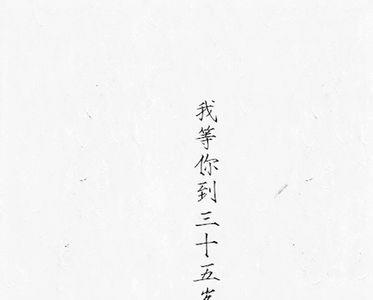 我等你到三十五岁